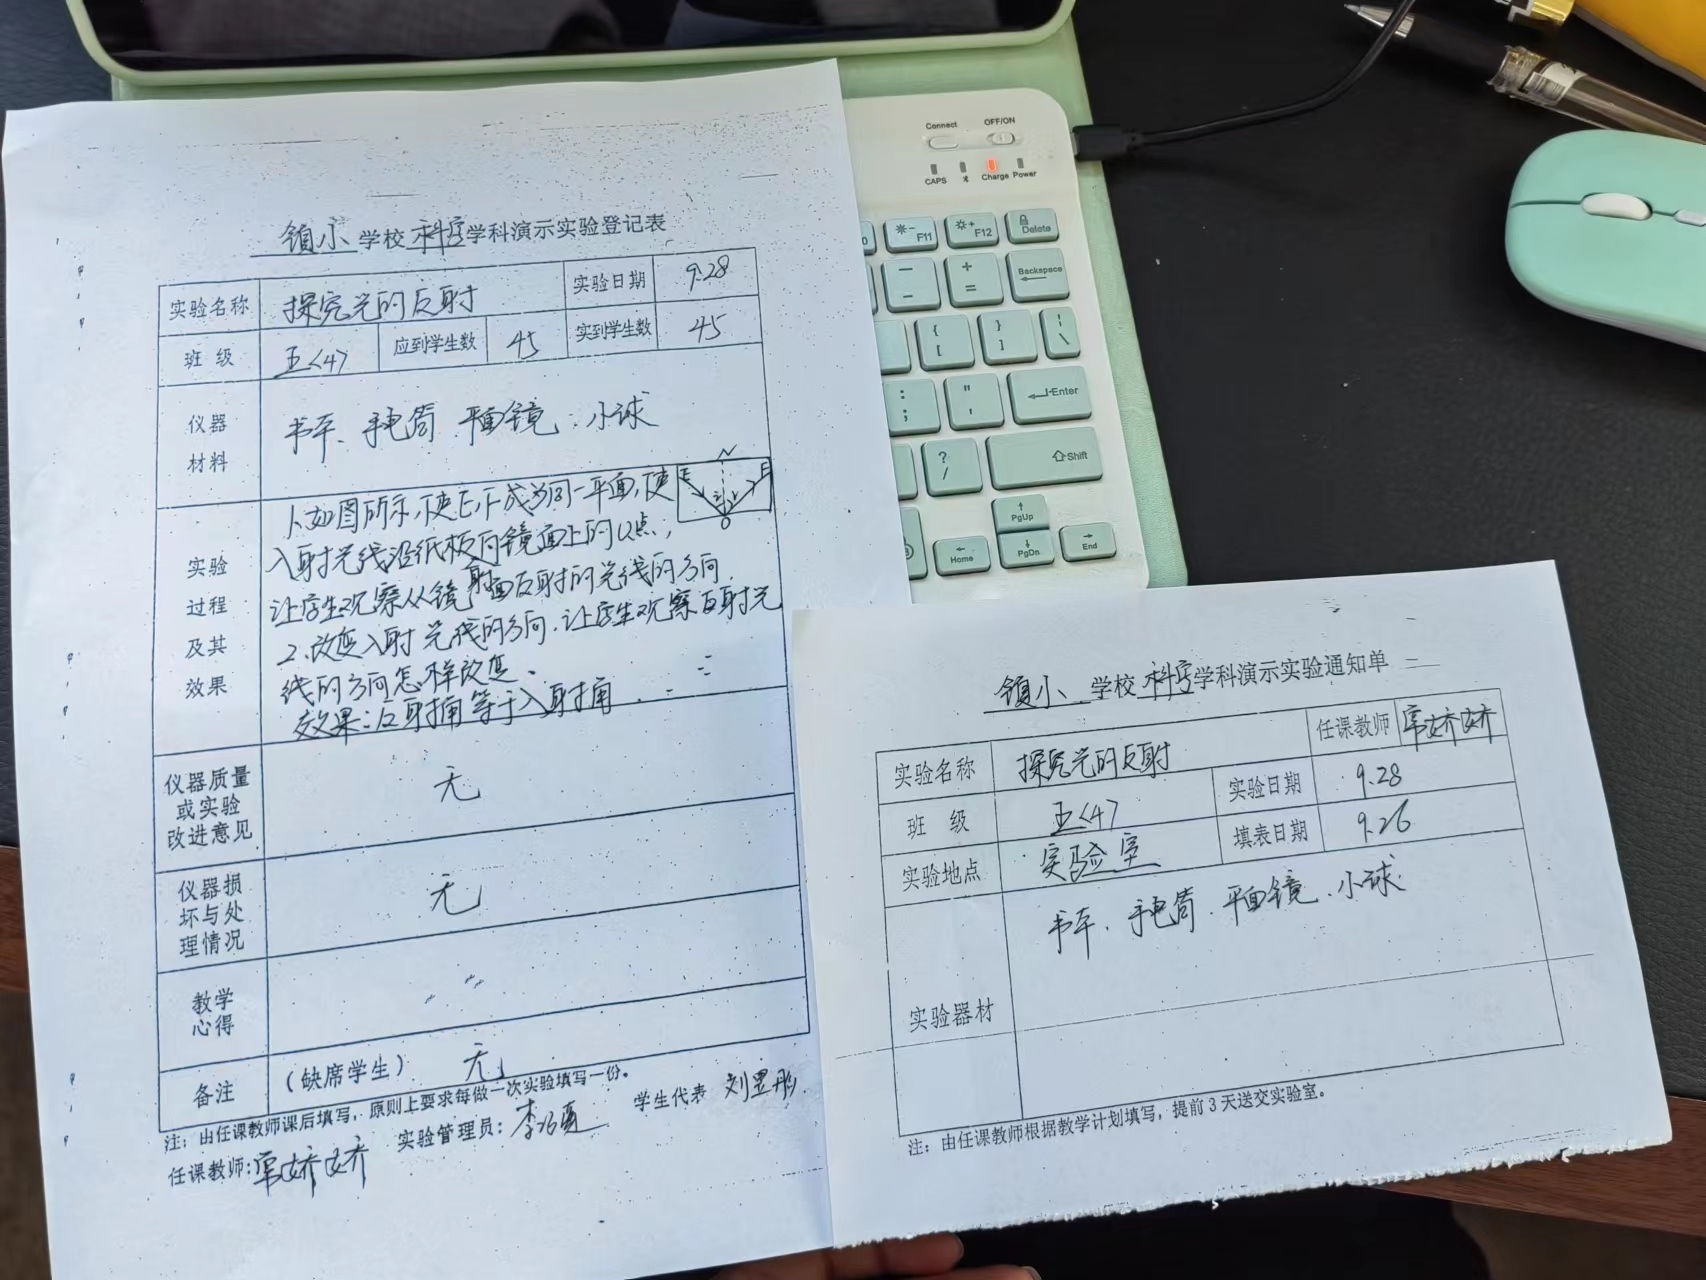 镇小 学校 科学 学科演示实验登记表
实验名称 探究光的反射 实验日期 9.28
班 级 五<4> 应到学生数 45 实到学生数 45
仪器
材料
书本、手电筒、平面镜、小球
实验
过程
及其
效果
1、如图所示,使E,F成为同一平面,使
入射光线沿纸板向镜面上的O点,
让学生观察从镜面反射的光线的方向.
2.改变入射光线的方向.让学生观察反射光
线的方向怎样改变.
效果:反射角等于入射角.
N
E F
O
仪器质量
或实验
改进意见
无
仪器损
坏与处
理情况
无
教学
心得
备注 (缺席学生) 无
注:由任课教师课后填写,原则上要求每做一次实验填写一份。
任课教师:常娇娇 实验管理员: 学生代表
镇小 学校 科学 学科演示实验通知单
实验名称 探究光的反射 任课教师 常娇娇
班 级 五<4> 实验日期 9.28
实验地点 实验室 填表日期 9.26
实验器材 书本、手电筒、平面镜、小球
注:由任课教师根据教学计划填写,提前3天送交实验室。
Connect OFF/ON
CAPS Charge Power
F11 F12 Delete
Backspace
Enter
Shift
PgUp
Home PgDn End